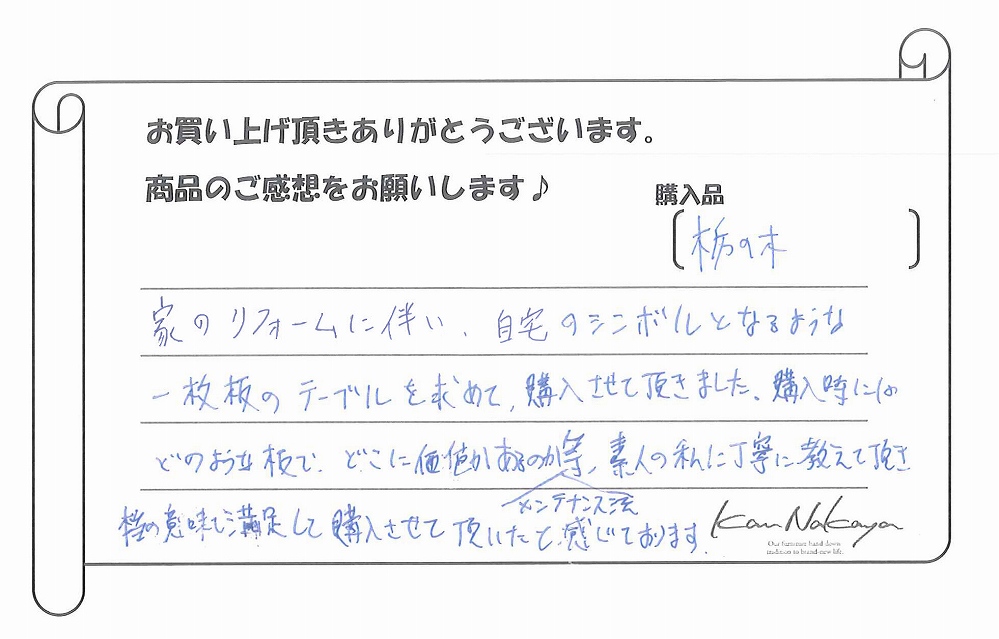 お買い上げ頂きありがとうございます。
商品のご感想をお願いします♪
購入品
栃の木
家のリフォームに伴い、自宅のシンボルとなるような
一枚板のテーブルを求めて、購入させて頂きました。購入時には
どのような板で、どこに価値があるのか等、素人の私に丁寧に教えて頂き
メンテナンス法
の意味で満足して購入させて頂いたと感じております。
Kan Nakaya
Our furniture hand down
tradition to brand-new life.